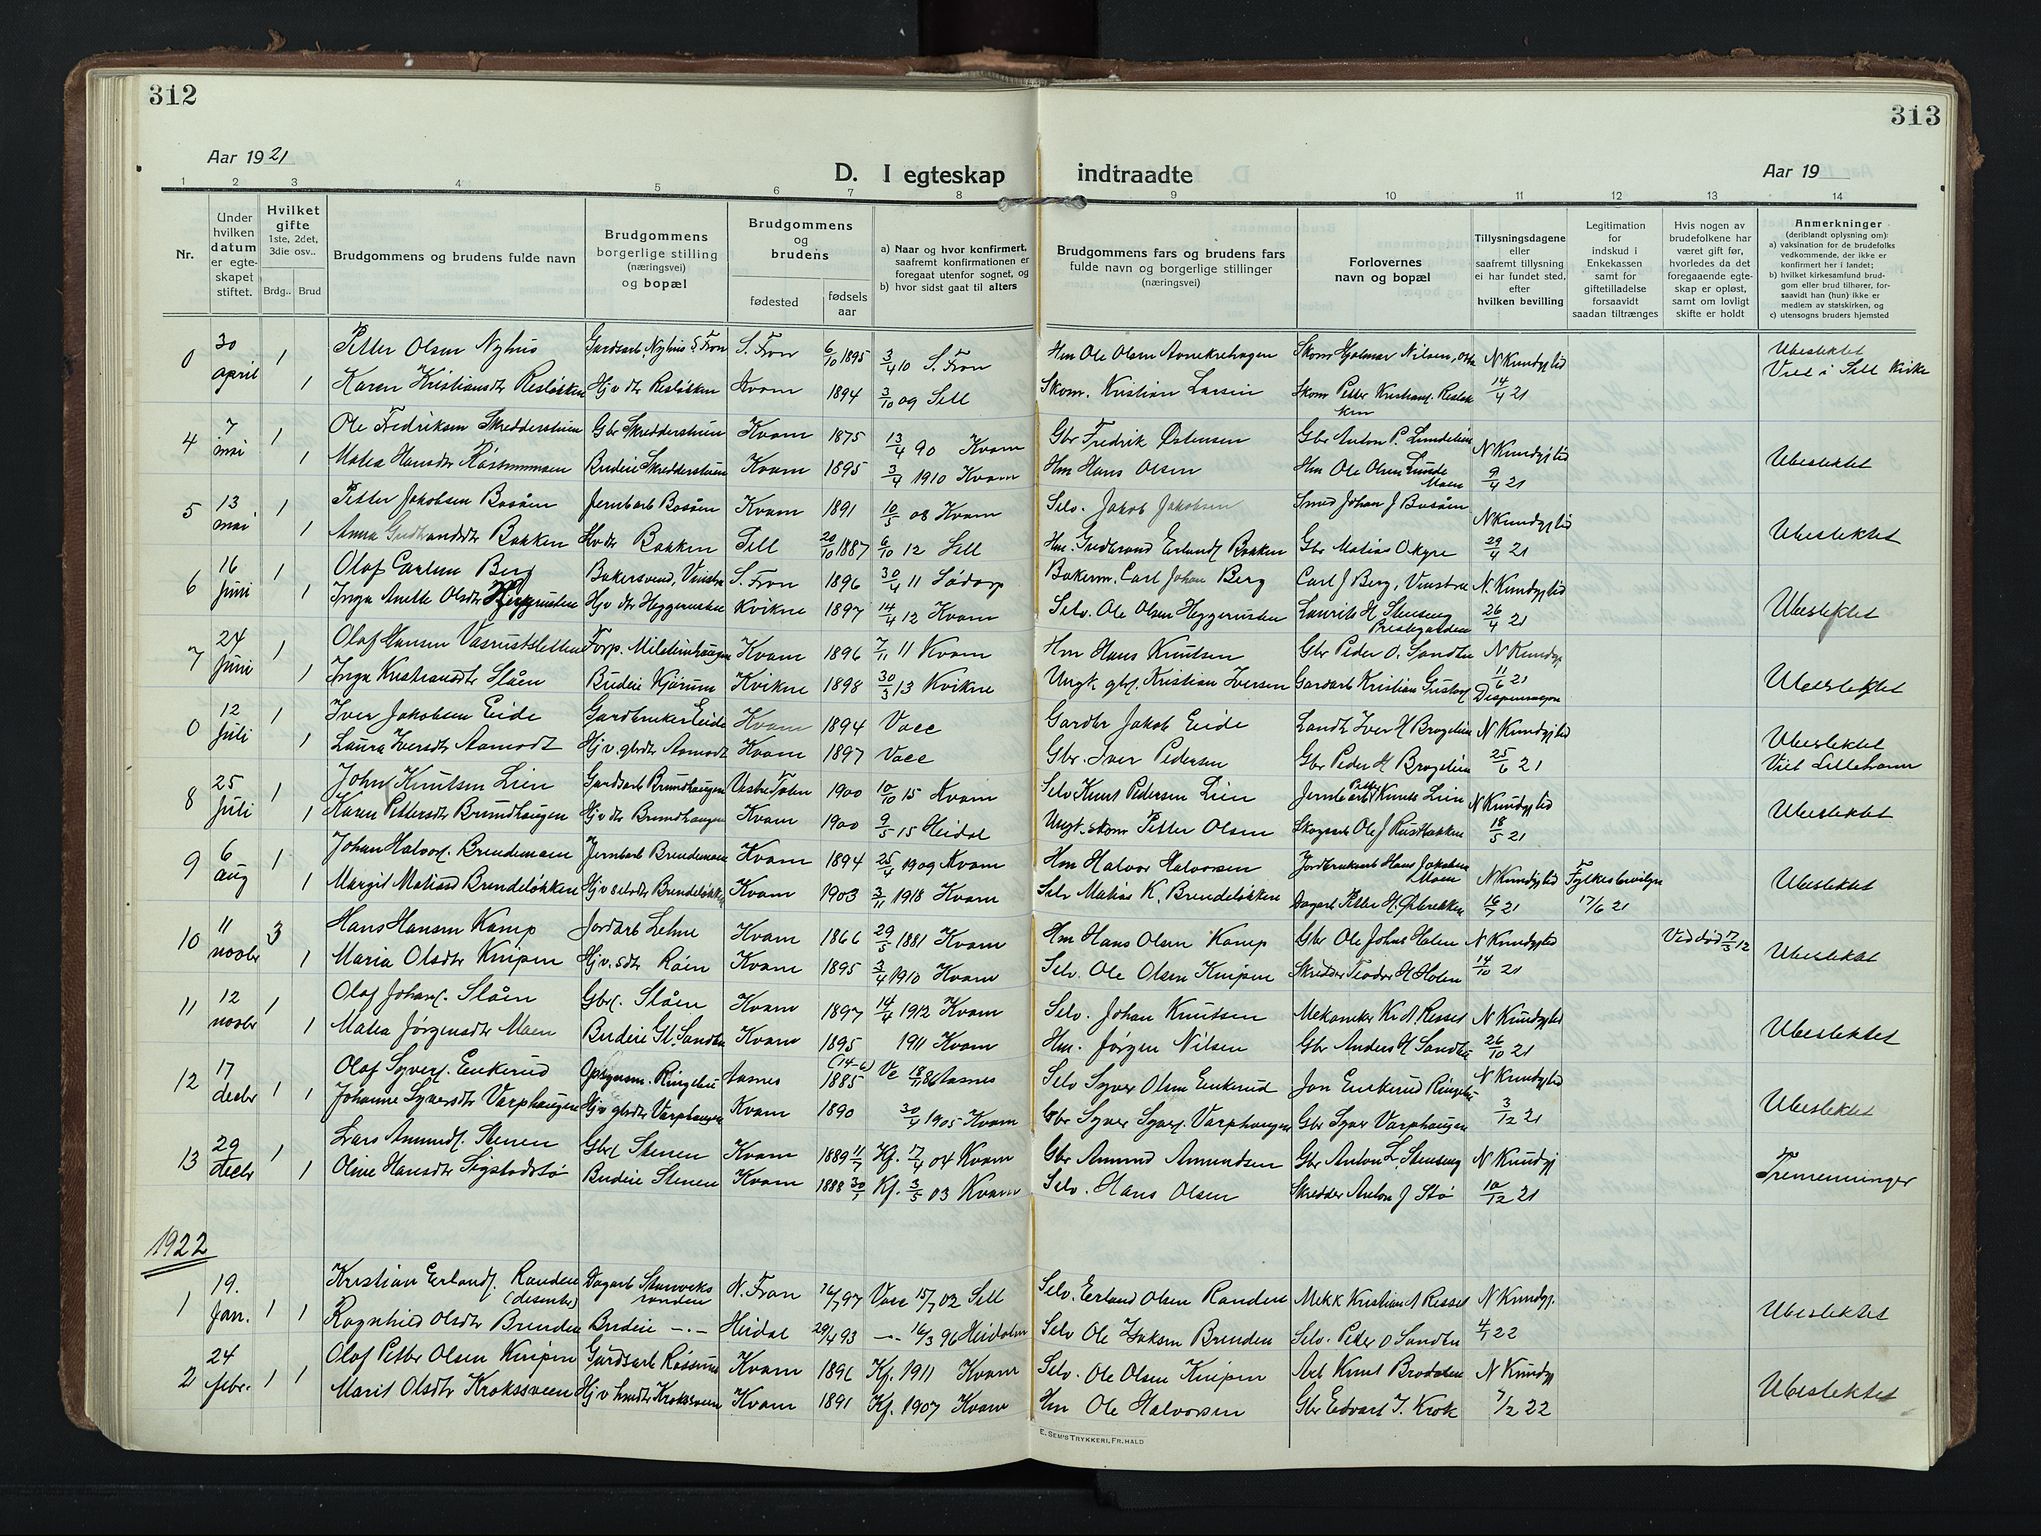 312
313
Aar 1921
D. I egteskap
indtraadte
Aar 19
1 2 3 4 5 6 7 8 9 10 11 12 13 14
Nr.
Under hvilken datum er egteskapet stiftet.
Hvilket gifte 1ste, 2det, 3die osv..
Brdg.. Brud
Brudgommens og brudens fulde navn
Brudgommens borgerlige stilling (næringsvei) og bopæl
Brudgommens og brudens
fødested
fødsels aar
a) Naar og hvor konfirmert, saafremt konfirmationen er foregaat utenfor sognet, og
b) hvor sidst gaat til alters
Brudgommens fars og brudens fars fulde navn og borgerlige stillinger (næringsvei)
Forlovernes navn og bopæl
Tillysningsdagene eller saafremt tillysning ei har fundet sted, efter hvilken bevilling
Legitimation for indskud i Enkekassen samt for giftetilladelse forsaavidt saadan tiltrænges
Hvis nogen av brudefolkene har været gift før, hvorledes da det foregaaende egteskap er opløst, samt om lovligt skifte er holdt
Anmerkninger (deriblandt oplysning om):
a) vaksination for de brudefolks vedkommende, der ikke er konfirmert her i landet;
b) hvilket kirkesamfund brudgom eller brud tilhører, forsaavidt han (hun) ikke er medlem av statskirken, og
c) utensogns bruders hjemsted
0 30 april 1 Petter Olsen Nyhus Gardsarb Nyhus S. Fron S. Fron 6/10 1895 3/4 10 S. Fron Hm Ole Olsen Skom Hjalmar Nilsen, N Kundgj tid Ubeslektet
1 Karen Kristiansdt Resløkken Hjv dt Resløkken Kvam 1894 3/10 09 Sell Skom. Kristian Larsen Skom Petter Kristians. Resløkken 14/4 21 Viet i Sell Kirke
4 7 mai 1 Ole Fredriksen Skredderstuen Gbr Skredderstuen Kvam 1875 13/4 90 Kvam Gbr Fredrik Østensen Gbr Anton P. Lundelien N Kundgj tid
1 Matea Hansdt Budeie Skredderstuen Kvam 1895 3/4 1910 Kvam Hm Hans Olsen Hm Ole Olsen Lunde Moen 9/4 21 Ubeslektet
5 13 mai 1 Petter Jakobsen Bosåen Jernbarb Bosåen Kvam 1891 10/5 08 Kvam Selv. Jakob Jakobsen Smed Johan J Bosåen N Kundgj tid
1 Anna Gudbrandsdt Bakken Hv dt Bakken Sell 20/10 1887 6/10 12 Sell Hm. Gudbrand Erlands. Bakken Gbr Matias Okyre 29/4 21 Ubeslektet
6 16 Juni 1 Olaf Carlsen Berg Bakersvend, Vinstra S. Fron 1896 30/4 11 Sødorp Bakerm. Carl Johan Berg Carl J Berg, Vinstra N. Kundgj tid
1 Inga Anette Olsdt Heggerusten Hjv dt Heggerusten Kvikne 1897 14/4 12 Kvam Selv. Ole Olsen Heggerusten Laurits H Stenseng Prestegarden 26/4 21 Ubeslektet
7 24 Juni 1 Olaf Hansen Vasrustsletten Forp. Kvam 1896 7/11 11 Kvam Hm Hans Knutsen Gbr Peder O. Sandbu N Kundgj
1 Inga Kristiansdt Slåen Budeie Kjørum Kvikne 1898 30/3 13 Kvikne Ungk. gbs. Kristian Iversen Gardarb Kristian Gustavs. 11/6 21 Dispensasjon Ubeslektet
0 12 Juli 1 Iver Jakobsen Eide Gardbruker Eide Kvam 1894 Vacc Gardbr Jakob Eide Landh Iver H Brogelien N Kundgj tid
1 Laura Iversdt Aamodt Hjv. gbsdt Aamodt Kvam 1897 Vacc Gbr. Iver Pedersen Gbr Peder H Brogelien 25/6 21 Ubeslektet Viet Lillehamr
8 25 Juli 1 John Knutsen Lien Gardsarb Brundhaugen Vestre Toten 1900 10/10 15 Kvam Selv Knut Pedersen Lien Jernbarb Petter Knuts Lien N Kundgj tid
1 Karen Pettersdt Brundhaugen Hjv dt Brundhaugen Kvam 1900 9/5 15 Heidal Ungk. skom Petter Olsen Skogsarb Ole J Rustbakken 18/5 21 Ubeslektet
9 6 aug 1 Johan Halvors. Brendemoen Jernbarb Brendemoen Kvam 1894 25/4 1909 Kvam Hm Halvor Halvorsen Jordbruksarb Hans Jakobsen Moen N Kundgj tid Fylkesbevilgn
1 Margit Matiasd Brendeløkken Hjv selvdt Brendeløkken Kvam 1903 3/11 1918 Kvam Selv Matias K. Brendeløkken Dagarb Petter H. Ørbrekken 16/7 21 17/6 21 Ubeslektet
10 11 novbr 3 Hans Hansen Kamp Jordarb Lehne Kvam 1866 29/5 1881 Kvam Hm Hans Olsen Kamp Gbr Ole Johns Holen N Kundgj tid Ved død 7/3 12
1 Maria Olsdtr Knipen Hjv. sdt Røen Kvam 1895 3/4 1910 Kvam Selv. Ole Olsen Knipen Skredder Teodor H Holen 14/10 21 Ubeslektet
11 12 novbr 1 Olaf Johans. Slåen Gbs. Slåen Kvam 1897 14/4 1912 Kvam Selv. Johan Knutsen Mekaniker Kr. A. Resset N Kundgj tid
1 Matea Jørgensdtr Moen Budeie Gl. Sandbu Kvam 1895 1911 Kvam Hm. Jørgen Nilsen Gbr Anders H Sandbu 26/10 21 Ubeslektet
12 17 decbr 1 Olaf Syvers. Enkerud Opsynsm. Ringebu Aasnes (14-6) 1885 Va 18/7 86 Aasnes Selv Syver Olsen Enkerud Jon Enkerud Ringebu N Kundgj tid
1 Johanne Syversdtr Varphaugen Hjv gbsdt Varphaugen Kvam 1890 30/4 1905 Kvam Gbr Syver Syvers. Varphaugen Gbr Syver Varphaugen 3/12 21 Ubeslektet
13 29 decbr 1 Lars Amunds. Stenen Gbs Stenen Kvam 1889 11/7 Kf. 17/4 04 Kvam Gbr Amund Amundsen Gbr Anton L. Stenseng N Kundgj
1 Oline Hansdtr Sigstadstø Budeie Stenen Kvam 1888 30/1 Kf. 3/5 03 Kvam Selv. Hans Olsen Skredder Anton J Stø 10/12 21 Tremenninger
1922
1 19. Jan. 1 1 Kristian Erlands. Randen (dissenter) Dagarb Randen N. Fron 26/7 97 Vacc 15/7 02 Sell Selv. Erland Olsen Randen Mekk Kristian A Resset N Kundgj.
Ragnhild Olsdtr Brenden Budeie -"- Heidal 29/4 93 -"- 16/3 96 Heidalen Selv Ole Isaksen Brenden Selv. Peder O Sandbu 4/1 22 Ubeslektet
2 24 febr. 1 1 Olaf Petter Olsen Knipen Gardsarb Kvam 1896 Kf. 1911 Kvam Selv. Ole Olsen Knipen Arb Knut Brodalen N Kundgj
Marit Olsdtr Kroksveen Hjv hmdtr Kroksveen Kvam 1891 Kf. 1907 Kvam Hm Ole Halvorsen Gbr Edvart I. Krok 7/2 22 Ubeslektet
E. SEM'S TRYKKERI, FR.HALD